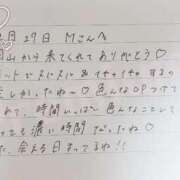 月29日 Mさんへ
岡山から来てくれてありがとう♡
ットでヌルヌル&イチャイチャするの
楽しかったね〜♡ 色んなOPつけて
れて、時間いっぱい色んなことして
ても濃い時間だったね♡
た会える日まってるね!!